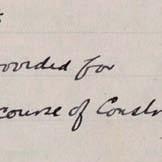 ovided for
course of Constr